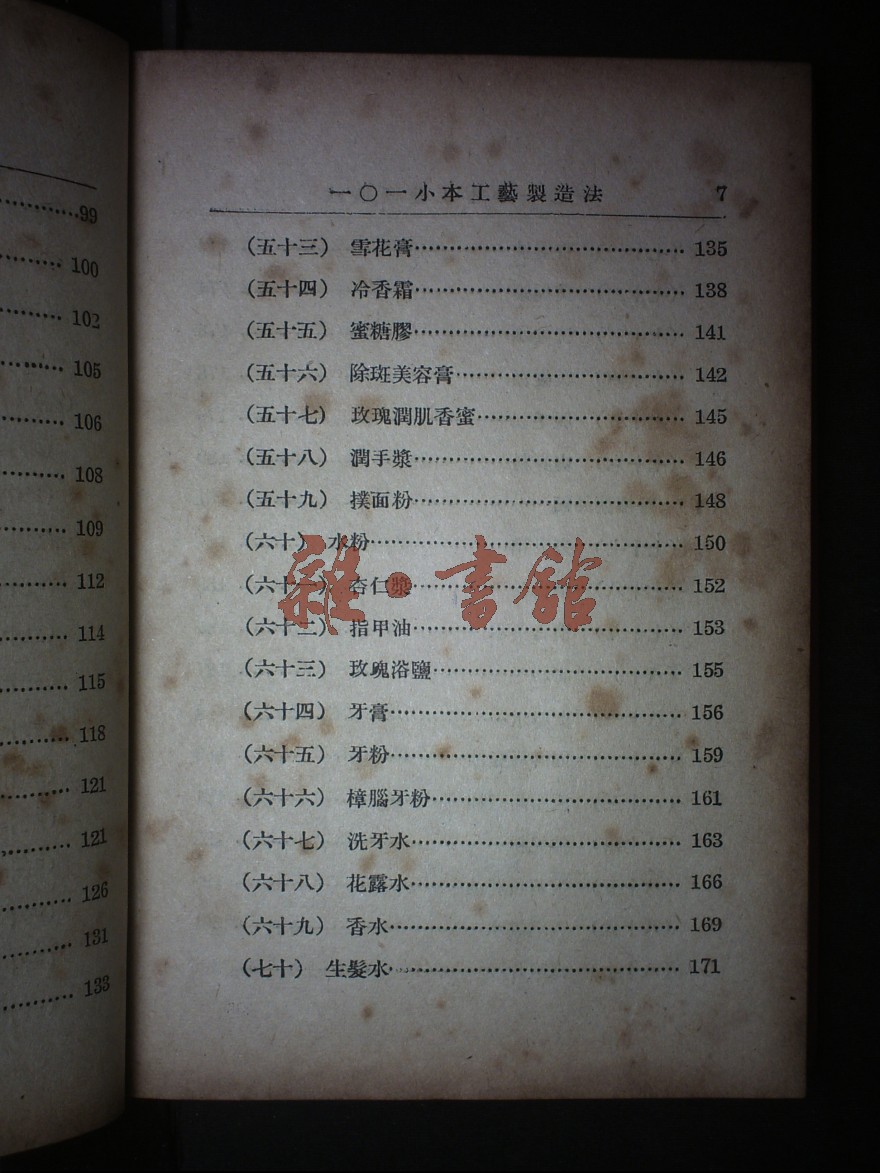 99
100
102
105
106
108
109
112
114
115
118
121
121
126
131
133
一〇一小本工藝製造法 7
（五十三） 雪花膏 135
（五十四） 冷香霜 138
（五十五） 蜜糖膠 141
（五十六） 除斑美容膏 142
（五十七） 玫瑰潤肌香蜜 145
（五十八） 潤手漿 146
（五十九） 撲面粉 148
（六十） 水粉 150
（六十一） 杏仁漿 152
（六十二） 指甲油 153
（六十三） 玫瑰浴鹽 155
（六十四） 牙膏 156
（六十五） 牙粉 159
（六十六） 樟腦牙粉 161
（六十七） 洗牙水 163
（六十八） 花露水 166
（六十九） 香水 169
（七十） 生髮水 171
雜·書館